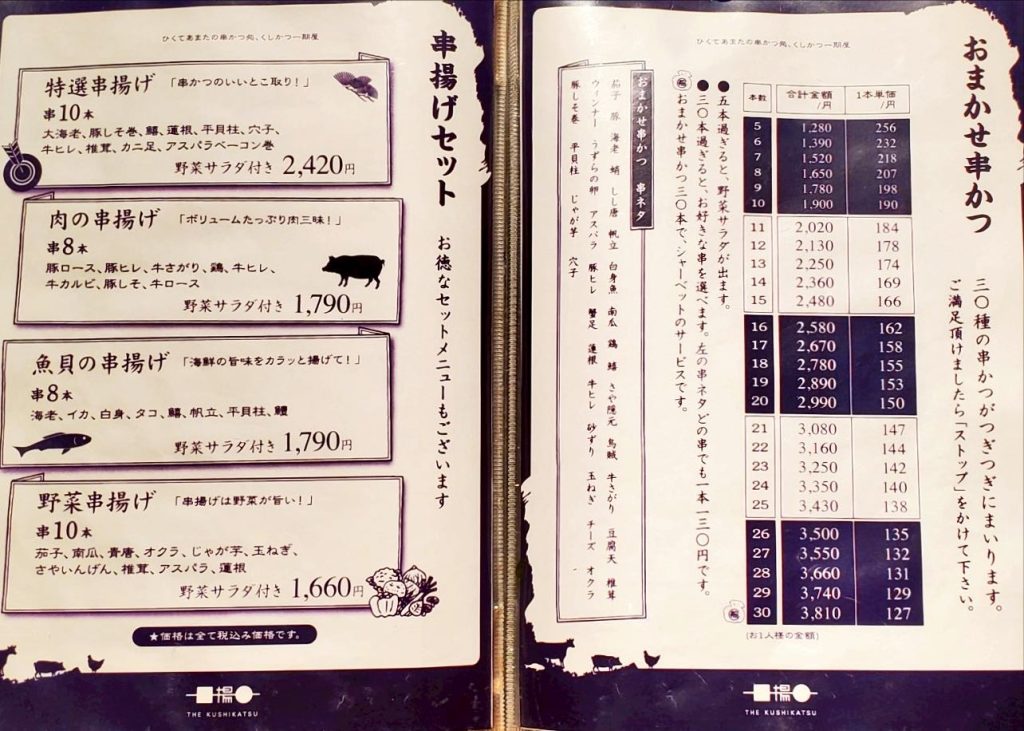 ひくてあまたの串かつ処、くしかつ一期屋
串揚げセット
お徳なセットメニューもございます
特選串揚げ 「串かつのいいとこ取り!」
串10本
大海老、豚しそ巻、鱚、蓮根、平貝柱、穴子、
牛ヒレ、椎茸、カニ足、アスパラベーコン巻
野菜サラダ付き 2,420円
肉の串揚げ 「ボリュームたっぷり肉三味!」
串8本
豚ロース、豚ヒレ、牛さがり、鶏、牛ヒレ、
牛カルビ、豚しそ、牛ロース
野菜サラダ付き 1,790円
魚貝の串揚げ 「海鮮の旨味をカラッと揚げて!」
串8本
海老、イカ、白身、タコ、鱚、帆立、平貝柱、鱧
野菜サラダ付き 1,790円
野菜串揚げ 「串揚げは野菜が旨い!」
串10本
茄子、南瓜、青唐、オクラ、じゃが芋、玉ねぎ、
さやいんげん、椎茸、アスパラ、蓮根
野菜サラダ付き 1,660円
★価格は全て税込み価格です。
串揚
THE KUSHIKATSU
ひくてあまたの串かつ処、くしかつ一期屋
おまかせ串かつ
三〇種の串かつがつぎつぎにまいります。
ご満足頂けましたら「ストップ」をかけて下さい。
本数 合計金額/円 1本単価/円
5 1,280 256
6 1,390 232
7 1,520 218
8 1,650 207
9 1,780 198
10 1,900 190
11 2,020 184
12 2,130 178
13 2,250 174
14 2,360 169
15 2,480 166
16 2,580 162
17 2,670 158
18 2,780 155
19 2,890 153
20 2,990 150
21 3,080 147
22 3,160 144
23 3,250 142
24 3,350 140
25 3,430 138
26 3,500 135
27 3,550 132
28 3,660 131
29 3,740 129
30 3,810 127
(お1人様の金額)
●五本過ぎると、野菜サラダが出ます。
●三〇本過ぎると、お好きな串を選べます。左の串ネタどの串でも一本一三〇円です。
おまかせ串かつ三〇本で、シャーベットのサービスです。
おまかせ串かつ 串ネタ
茄子 豚 海老 蛸 しし唐 帆立 白身魚 南瓜 鶏 鱚 きや隠元 烏賊 牛さがり 豆腐天 椎茸
ウィンナー うずらの卵 アスパラ 豚ヒレ 蟹足 蓮根 牛ヒレ 砂ずり 玉ねぎ チーズ オクラ
豚しそ巻 平貝柱 じゃが芋 穴子
串揚
THE KUSHIKATSU